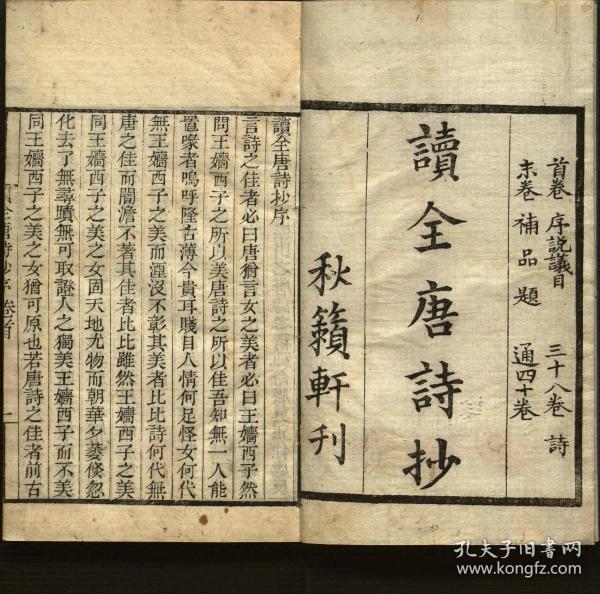 首卷 序說議目 三十八卷 詩
末卷 補品題 通四十卷
讀全唐詩抄
秋籟軒刊
讀全唐詩抄序
言詩之佳者必曰唐猶言女之美者必曰王嬙西子然
問王嬙西子之所以美唐詩之所以佳吾知無一人能
置喙者嗚呼隆古薄今貴耳賤目人情何足怪女何代
無王嬙西子之美而湮沒不彰其美者比比詩何代無
唐之佳而闇澹不著其佳者比比雖然王嬙西子之美
同王嬙西子之美之女固天地尤物而朝華夕萎倏忽
化去了無尋蹟無可取證人之獨美王嬙西子而不美
同王嬙西子之美之女猶可原也若唐詩之佳者前古
讀全唐詩抄序 卷首 一
孔夫子旧书网
www.kongfz.com